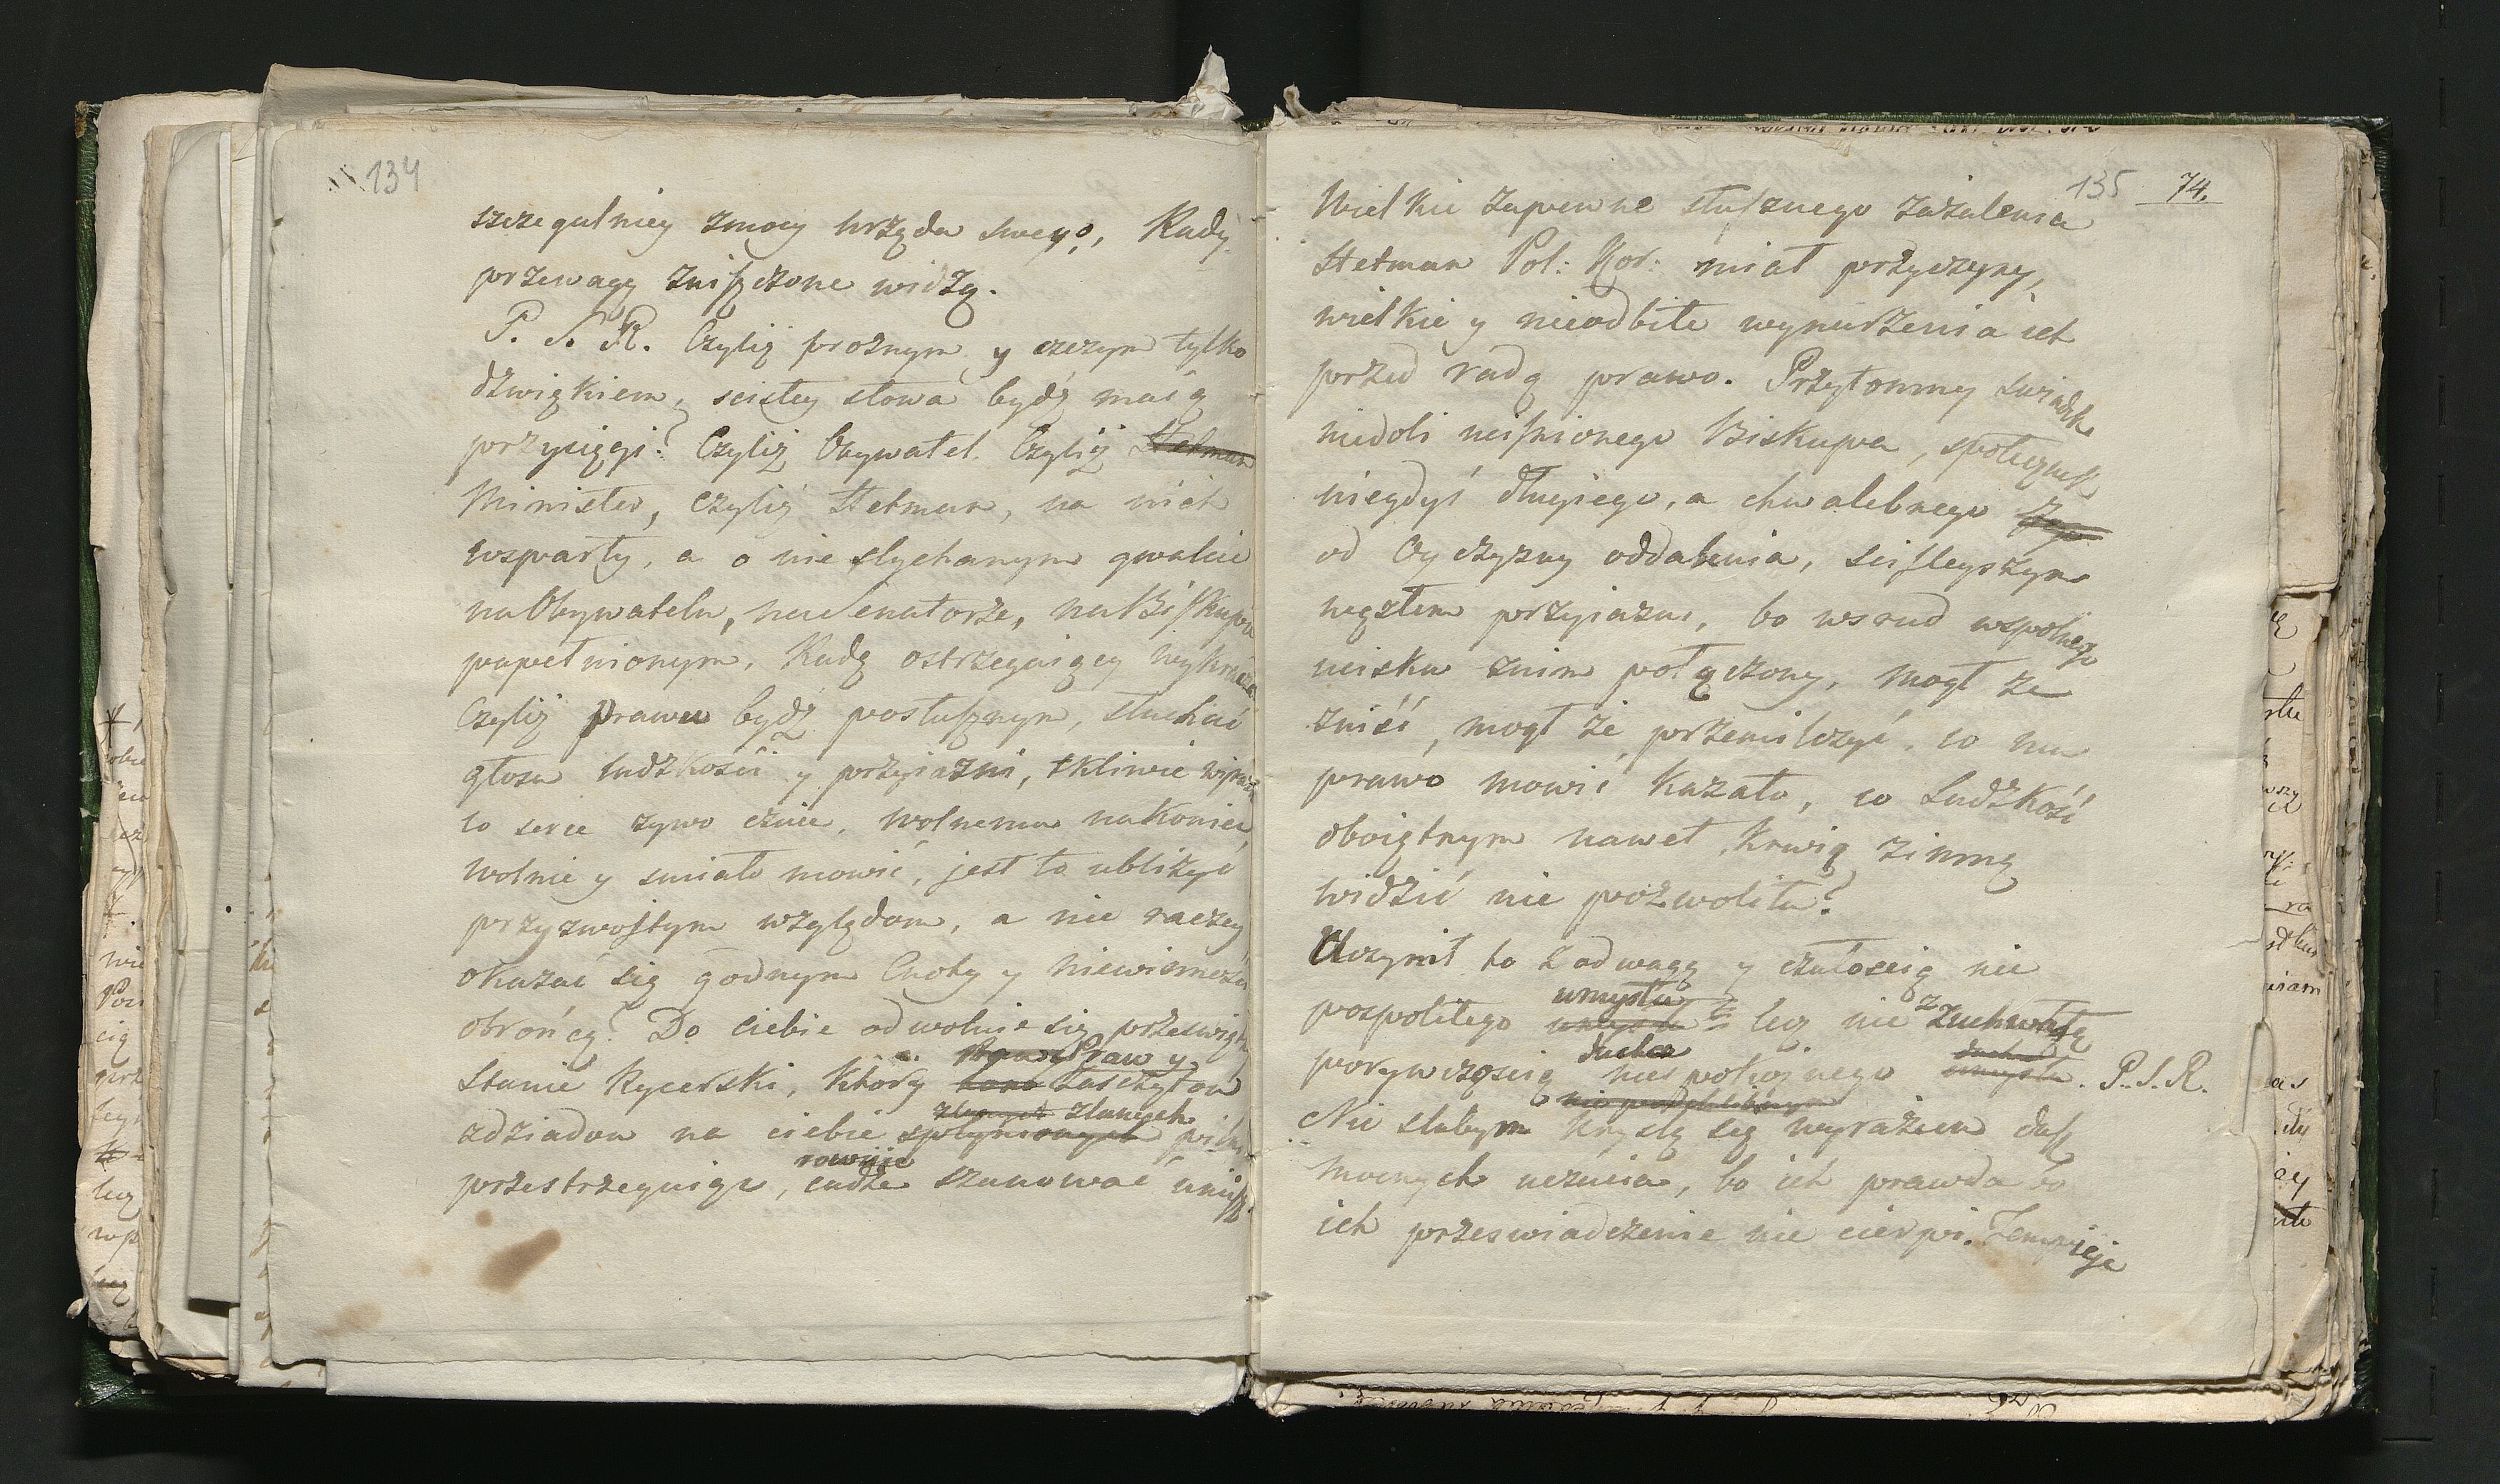 134
szczegulniey zmocy urzędu swego, Rady
przewagę zniszczone widzę.
P. S. R. Czyliż prożnym y czczym tylko
dzwiękiem, scisłey słowa bydź maią
przysięgi? Czyliż Obywatel. Czyliż Hetman
Minister, czyliż Hetman, na nich
wsparty, a o nie słychanym gwałcie
na Obywatelu, na Senatorze, na Biskupie
popełnionym, Radę ostrzegaiący wykracza
Czyliż prawu bydź posłusznym, słuchać
głosu ludzkości y przyiazni, tkliwie
co serce zywo czuie, wolnemu nakoniec
wolnie y smiało mowić, jest to ubliżyć
przyzwoitym względom, a nie raczey
okazać się godnym Cnoty y niewinności
obrońcą? Do ciebie odwołuie się prześwietny
Praw y
Stanie Rycerski, ktory zasczytow
zlanych zlanych
zdziadow na ciebie spłynionych pilnie
rownie
przestrzegaiąc, cudze szanować umiesz
135 74.
Wielkie zapewne słusznego zażalenia
Hetman Pol: Kor: miał przyczyny,
wielkie y nieodbite wynurzenia ich
przed radą prawo. Przytomny swiadek
niedoli ucisnionego Biskupa, społecznik
niegdyś długiego, a chwalebnego
od Oyczyzny oddalenia, scisleyszym
węzłem przyiazni, bo wsrud wspolnego
ucisku znim połączony, mogł że
znieść, mogł że przemilczyć, co mu
prawo mowić kazało, co Ludzkość
oboiętnym nawet, krwią zimną
widzić nie pozwoliła?
Uczynił to z odwagą y czułością nie
umysłu
pospolitego umysłu lecz nie z zuchwałą
ducha ducha
porywczością niespokoynego umysłu. P. S. R.
nie pochlebnym
Nie słabym kryslę się wyrazem dusz
mocnych uczucia, bo ich prawda bo
ich przeswiadczenie nie cierpi.